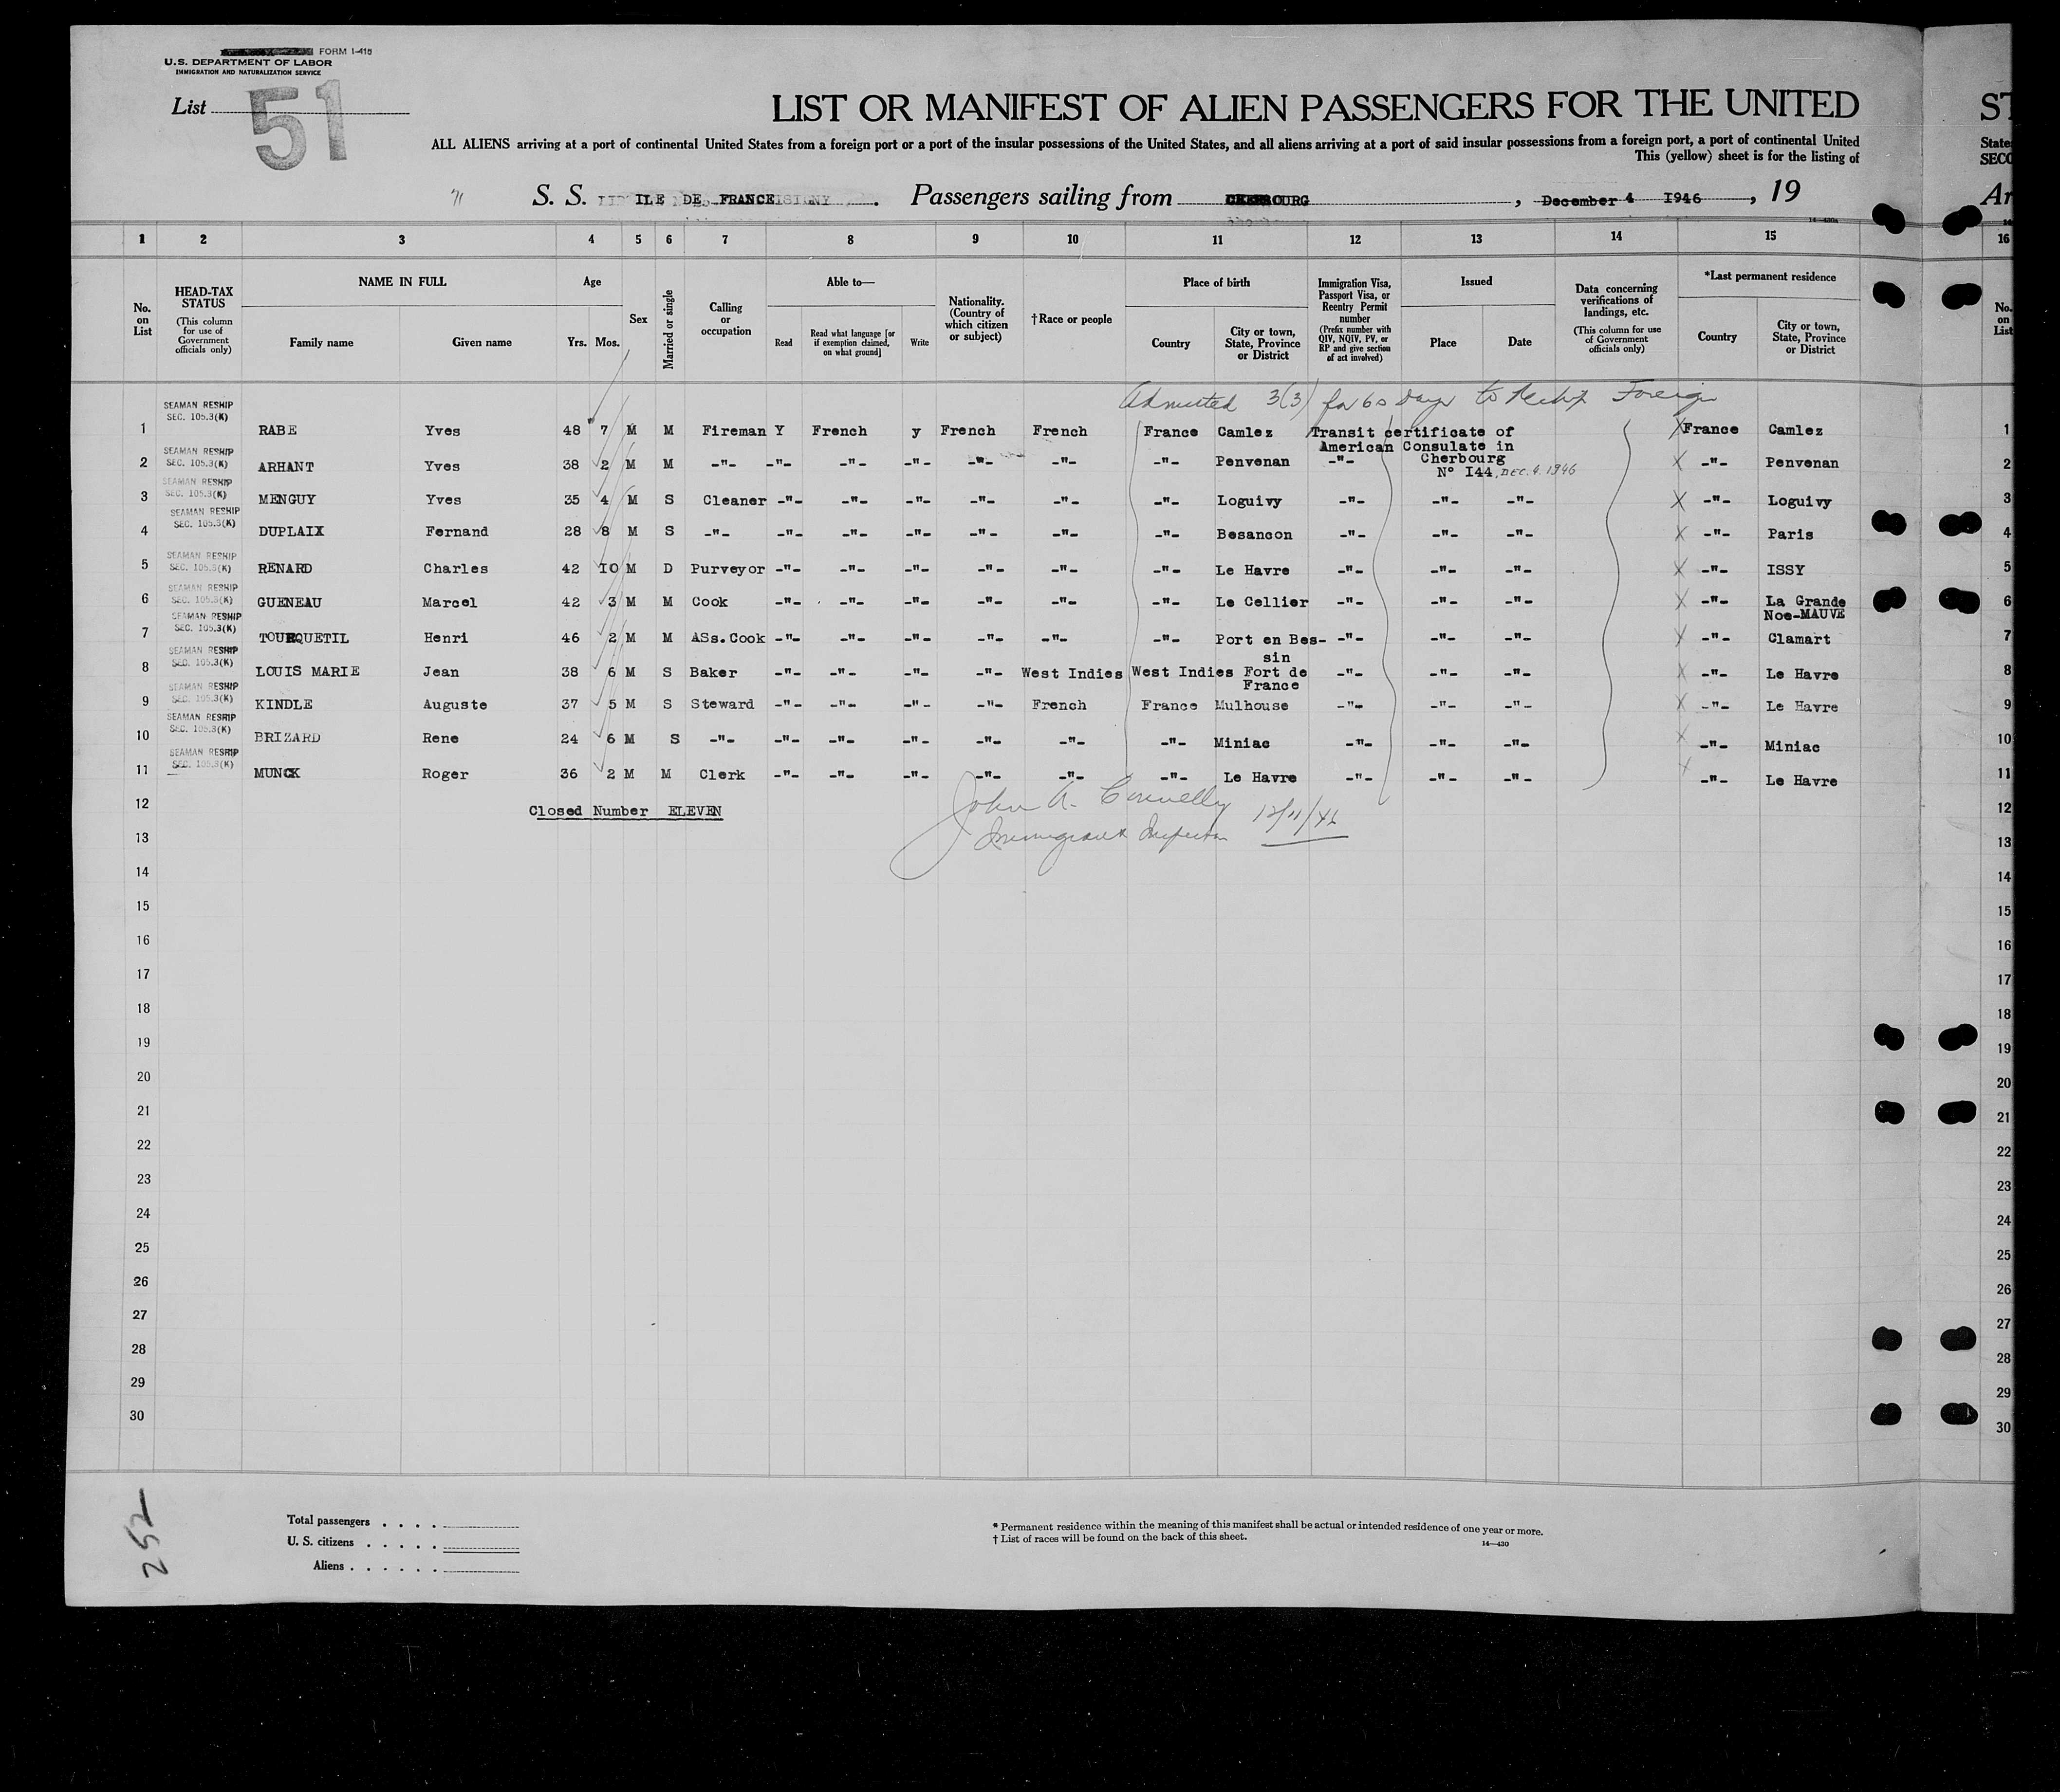 FORM I-415
U.S. DEPARTMENT OF LABOR
IMMIGRATION AND NATURALIZATION SERVICE
List 51
LIST OR MANIFEST OF ALIEN PASSENGERS FOR THE UNITED
ST
ALL ALIENS arriving at a port of continental United States from a foreign port or a port of the insular possessions of the United States, and all aliens arriving at a port of said insular possessions from a foreign port, a port of continental United
State
This (yellow) sheet is for the listing of
SECO
S. S. ILE DE FRANCE . Passengers sailing from CHERBOURG , December 4 1946 , 19
Ar
1 2 3 4 5 6 7 8 9 10 11 12 13 14 15 16
No. on List
HEAD-TAX STATUS (This column for use of Government officials only)
NAME IN FULL Family name Given name
Age Yrs. Mos.
Sex
Married or single
Calling or occupation
Able to— Read Read what language [or if exemption claimed, on what ground] Write
Nationality. (Country of which citizen or subject)
†Race or people
Place of birth Country City or town, State, Province or District
Immigration Visa, Passport Visa, or Reentry Permit number (Prefix number with QIV, NQIV, PV, or RP and give section of act involved)
Issued Place Date
Data concerning verifications of landings, etc. (This column for use of Government officials only)
*Last permanent residence Country City or town, State, Province or District
No. on List
Admitted 3(3) for 60 Days to Reship Foreign
SEAMAN RESHIP SEC. 105.3(K)
1 RABE Yves 48 7 M M Fireman Y French y French French France Camlez Transit certificate of France Camlez 1
American Consulate in
SEAMAN RESHIP SEC. 105.3(K)
2 ARHANT Yves 38 2 M M -"- -"- -"- -"- -"- -"- -"- Penvenan -"- Cherbourg -"- Penvenan 2
N° I44, DEC. 4. 1946
SEAMAN RESHIP SEC. 105.3(K)
3 MENGUY Yves 35 4 M S Cleaner -"- -"- -"- -"- -"- -"- Loguivy -"- -"- -"- -"- Loguivy 3
SEAMAN RESHIP SEC. 105.3(K)
4 DUPLAIX Fernand 28 8 M S -"- -"- -"- -"- -"- -"- -"- Besancon -"- -"- -"- -"- Paris 4
SEAMAN RESHIP SEC. 105.3(K)
5 RENARD Charles 42 IO M D Purveyor -"- -"- -"- -"- -"- -"- Le Havre -"- -"- -"- -"- ISSY 5
SEAMAN RESHIP SEC. 105.3(K)
6 GUENEAU Marcel 42 3 M M Cook -"- -"- -"- -"- -"- -"- Le Cellier -"- -"- -"- -"- La Grande 6
Noe-MAUVE
SEAMAN RESHIP SEC. 105.3(K)
7 TOURQUETIL Henri 46 2 M M ASs.Cook -"- -"- -"- -"- -"- -"- Port en Bes- -"- -"- -"- -"- Clamart 7
sin
SEAMAN RESHIP SEC. 105.3(K)
8 LOUIS MARIE Jean 38 6 M S Baker -"- -"- -"- -"- West Indies West Indies Fort de -"- -"- -"- -"- Le Havre 8
France
SEAMAN RESHIP SEC. 105.3(K)
9 KINDLE Auguste 37 5 M S Steward -"- -"- -"- -"- French France Mulhouse -"- -"- -"- -"- Le Havre 9
SEAMAN RESHIP SEC. 105.3(K)
10 BRIZARD Rene 24 6 M S -"- -"- -"- -"- -"- -"- -"- Miniac -"- -"- -"- -"- Miniac 10
SEAMAN RESHIP SEC. 105.3(K)
11 MUNCK Roger 36 2 M M Clerk -"- -"- -"- -"- -"- -"- Le Havre -"- -"- -"- -"- Le Havre 11
12 Closed Number ELEVEN John A. Connelly 12/11/46 12
13 Immigrant Inspector 13
14 14
15 15
16 16
17 17
18 18
19 19
20 20
21 21
22 22
23 23
24 24
25 25
26 26
27 27
28 28
29 29
30 30
252
Total passengers . . . .
U. S. citizens . . . . .
Aliens . . . . . .
* Permanent residence within the meaning of this manifest shall be actual or intended residence of one year or more.
† List of races will be found on the back of this sheet.
14—430